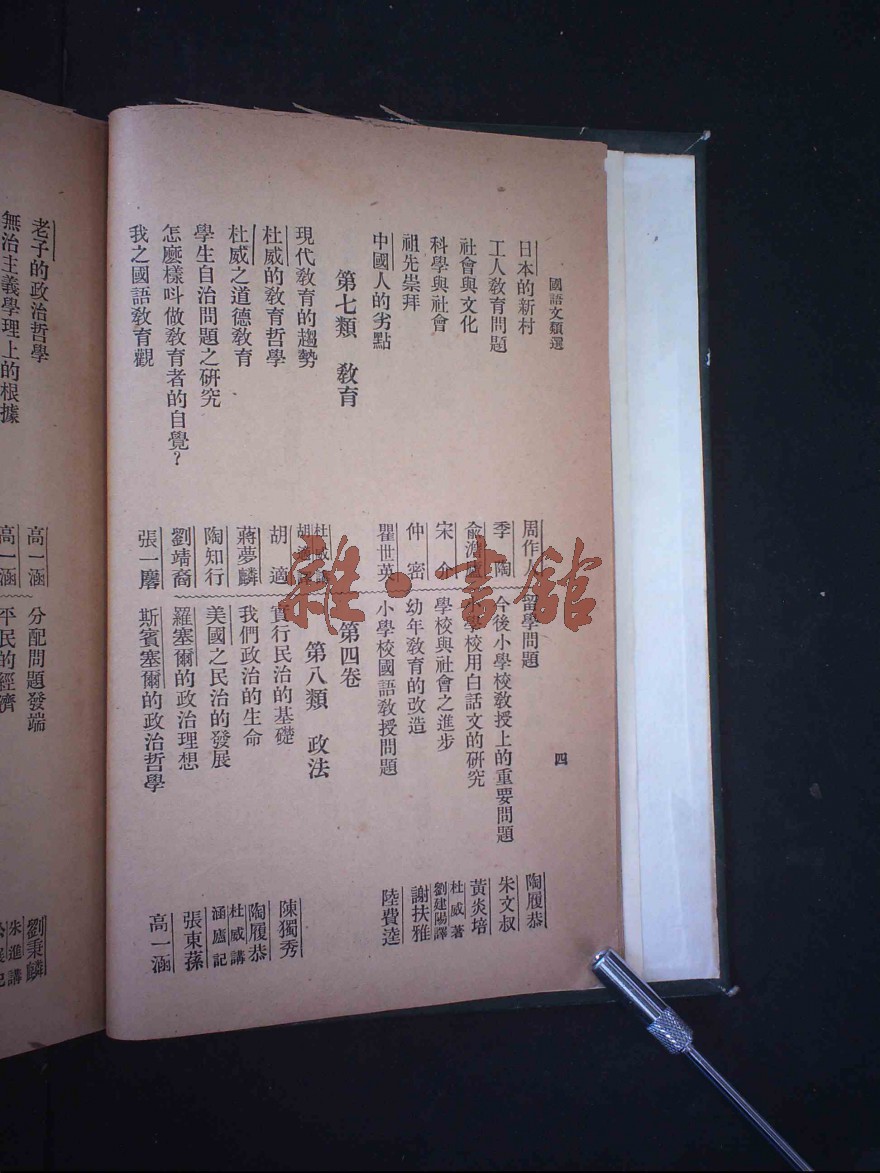 國語文類選
四
日本的新村　周作人
工人教育問題　季　陶
社會與文化　俞
科學與社會　宋　介
祖先崇拜　仲　密
中國人的劣點　瞿世英
第七類　教育
現代教育的趨勢　杜威講 胡適譯
杜威的教育哲學　胡　適
杜威之道德教育　蔣夢麟
學生自治問題之研究　陶知行
怎麽樣叫做教育者的自覺？　劉靖裔
我之國語教育觀　張一麐
留學問題　陶履恭
今後小學校教授上的重要問題　朱文叔
小學校用白話文的研究　黃炎培
學校與社會之進步　杜威著 劉建陽譯
幼年教育的改造　謝扶雅
小學校國語教授問題　陸費逵
第四卷
第八類　政法
實行民治的基礎　陳獨秀
我們政治的生命　陶履恭
美國之民治的發展　杜威講 涵廬記
羅塞爾的政治理想　張東蓀
斯賓塞爾的政治哲學　高一涵
老子的政治哲學　高一涵
無治主義學理上的根據　高一涵
分配問題發端　劉秉麟
平民的經濟　朱進講
雜·書館